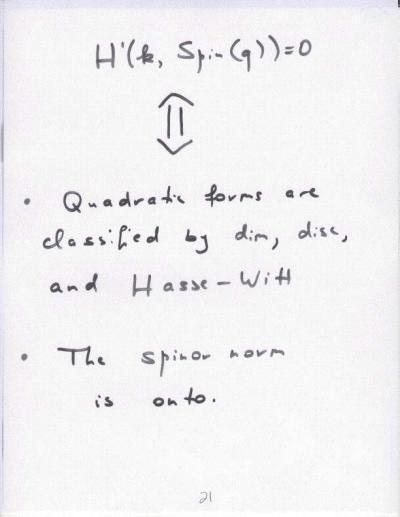 H¹(k, Spin(q))=0
⇕
• Quadratic forms are
classified by dim, disc,
and Hasse-Witt
• The spinor norm
is onto.
21